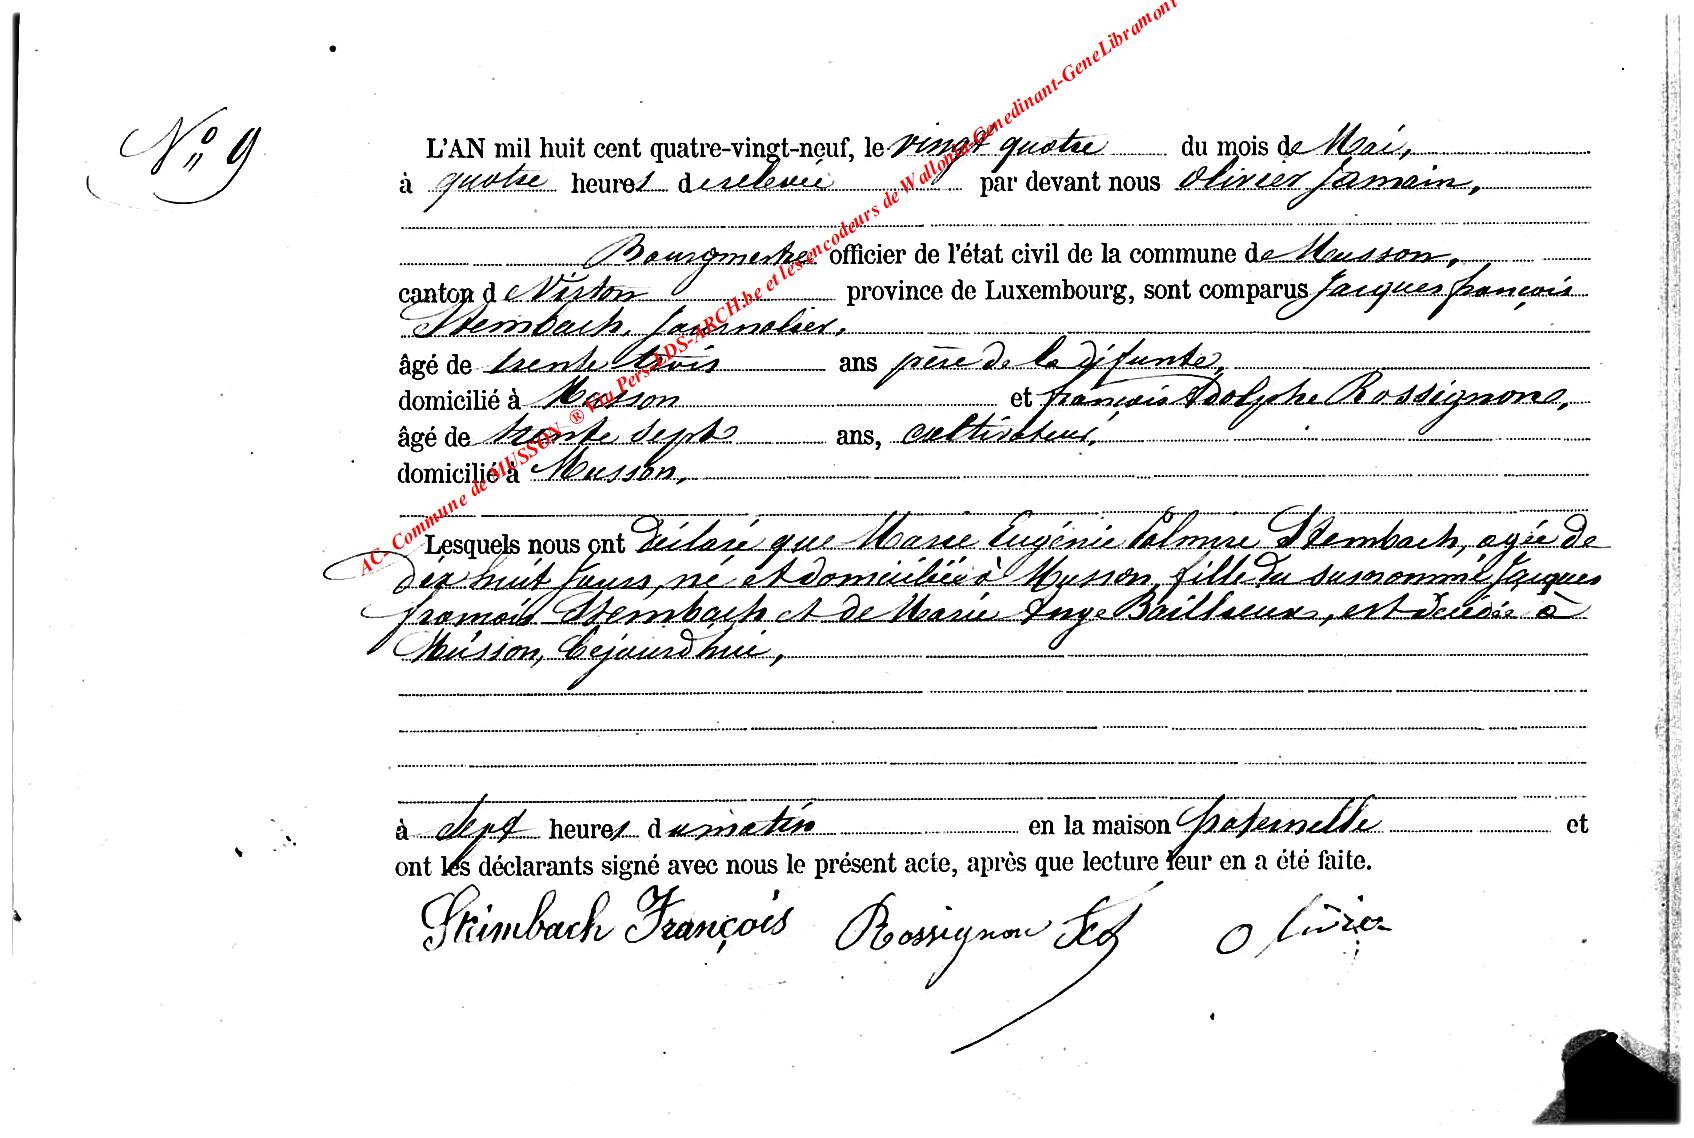 N° 9
L'AN mil huit cent quatre-vingt-neuf, le vingt quatre du mois de Mai,
à quatre heures de relevée par devant nous Olivier Jamain,
Bourgmestre officier de l'état civil de la commune de Musson,
canton de Virton province de Luxembourg, sont comparus Jacques françois
Steimbach, Journalier,
âgé de trente trois ans père de la défunte,
domicilié à Musson et françois Adolphe Rossignon,
âgé de trente sept ans, cultivateur,
domicilié à Musson,
Lesquels nous ont déclaré que Marie Eugénie Palmire Steimbach, agée de
dix huit Jours, né et domiciliée à Musson, fille du susnommé Jacques
françois Steimbach et de Marie Ange Baillieux, est décédée à
Musson, Cejourd'hui,
à sept heures du matin en la maison paternelle et
ont les déclarants signé avec nous le présent acte, après que lecture leur en a été faite.
Steimbach François Rossignon Olivier
AC- Commune de MUSSON ® Via Pers-LDS-ARCH.be et les encodeurs de Wallonia-Genedinant-GeneLibramont